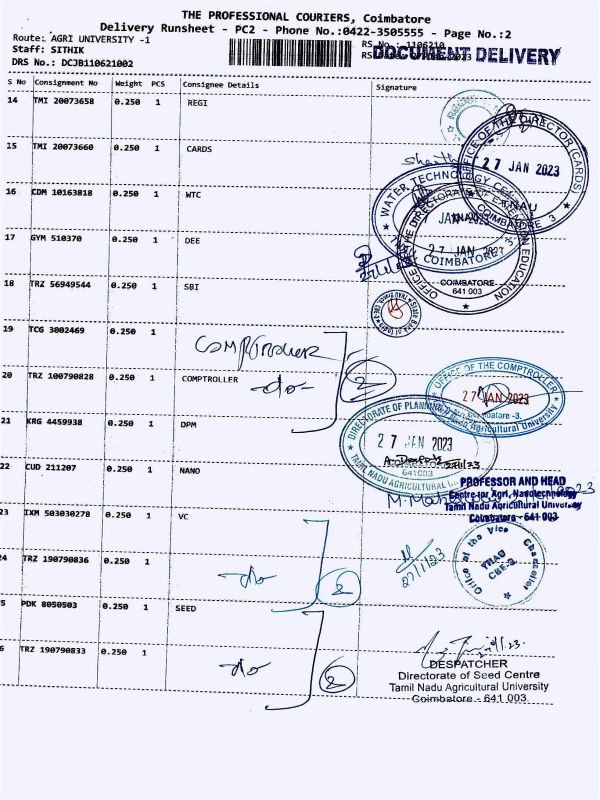 THE PROFESSIONAL COURIERS, Coimbatore
Delivery Runsheet - PC2 - Phone No.:0422-3505555 - Page No.:2
Route: AGRI UNIVERSITY -1
RS No.: 1106210
DOCUMENT DELIVERY
Staff: SITHIK
DRS No.: DCJB110621002
S No Consignment No Weight PCS Consignee Details Signature
14 TMI 20073658 0.250 1 REGI
15 TMI 20073660 0.250 1 CARDS
OFFICE OF THE DIRECTOR (CARDS)
27 JAN 2023
TNAU
COIMBATORE 3
16 CDM 10163818 0.250 1 WTC
WATER TECHNOLOGY CENTRE
JAN 2023
COIMBATORE - 3
17 GYM 510370 0.250 1 DEE
27 JAN 2023
COIMBATORE
641 003
18 TRZ 56949544 0.250 1 SBI
19 TCG 3002469 0.250 1
Comptroller
20 TRZ 100790828 0.250 1 COMPTROLLER
-do-
2
OFFICE OF THE COMPTROLLER
27 JAN 2023
Coimbatore -3.
Tamil Nadu Agricultural University
21 KRG 4459938 0.250 1 DPM
DIRECTORATE OF PLANNING
27 JAN 2023
641003
TAMIL NADU AGRICULTURAL
22 CUD 211207 0.250 1 NANO
PROFESSOR AND HEAD
Centre for Agri. Nanotechnology
Tamil Nadu Agricultural University
Coimbatore - 641 003
23 IXM 503030278 0.250 1 VC
27/1/23
Office of the Vice Chancellor
TNAU
CBE-3
24 TRZ 190790836 0.250 1
-do-
2
5 PDK 8050503 0.250 1 SEED
6 TRZ 190790833 0.250 1
-do-
2
DESPATCHER
Directorate of Seed Centre
Tamil Nadu Agricultural University
Coimbatore - 641 003